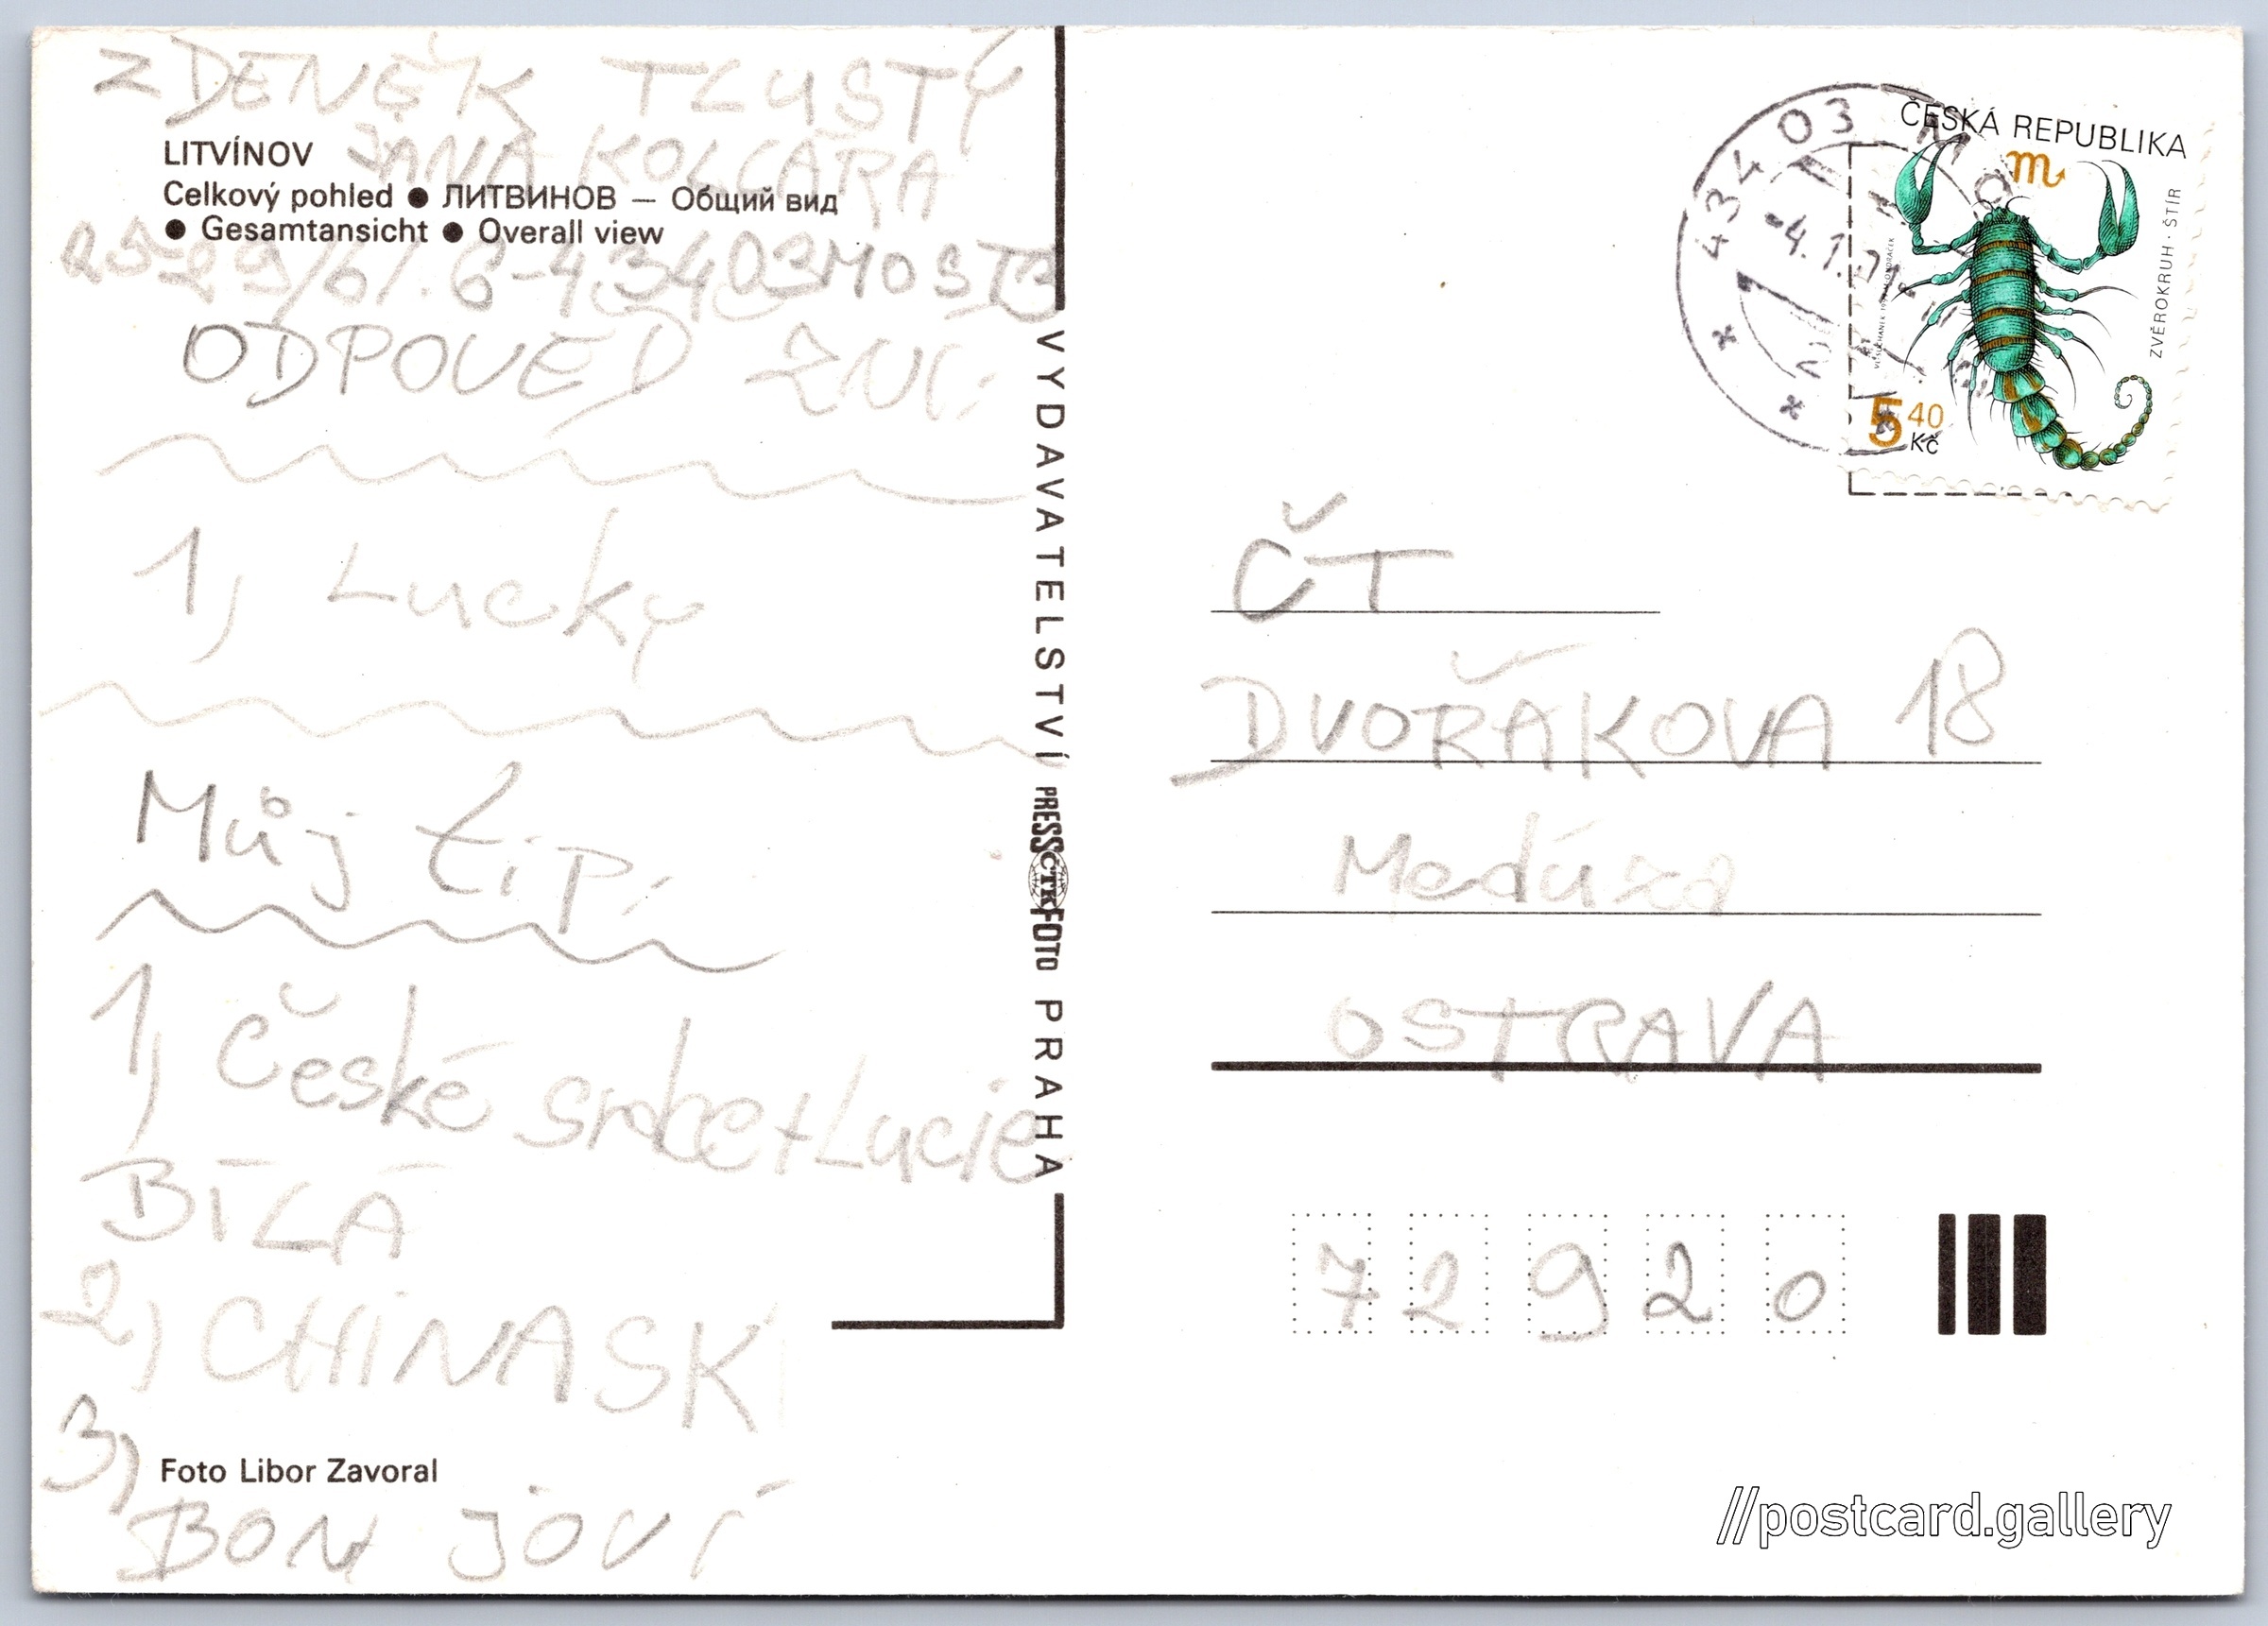 ZDENĚK TLUSTÝ
LITVÍNOV
JANA KOLCÁRA
Celkový pohled ● ЛИТВИНОВ — Общий вид
● Gesamtansicht ● Overall view
6-43403 MOST
ODPOVĚD ZNÍ:
1) Lucky
Můj tip:
1) České srdce+Lucie
BÍLÁ
2) CHINASKI
3)
Foto Libor Zavoral
BON JOVI
VYDAVATELSTVÍ PRESSFOTO PRAHA
ČTK
434 03 M
-4.1.01
ČESKÁ REPUBLIKA
ZVĚROKRUH · ŠTÍR
5 40
Kč
ČT
DVOŘÁKOVA 18
Medúza
OSTRAVA
72920
//postcard.gallery